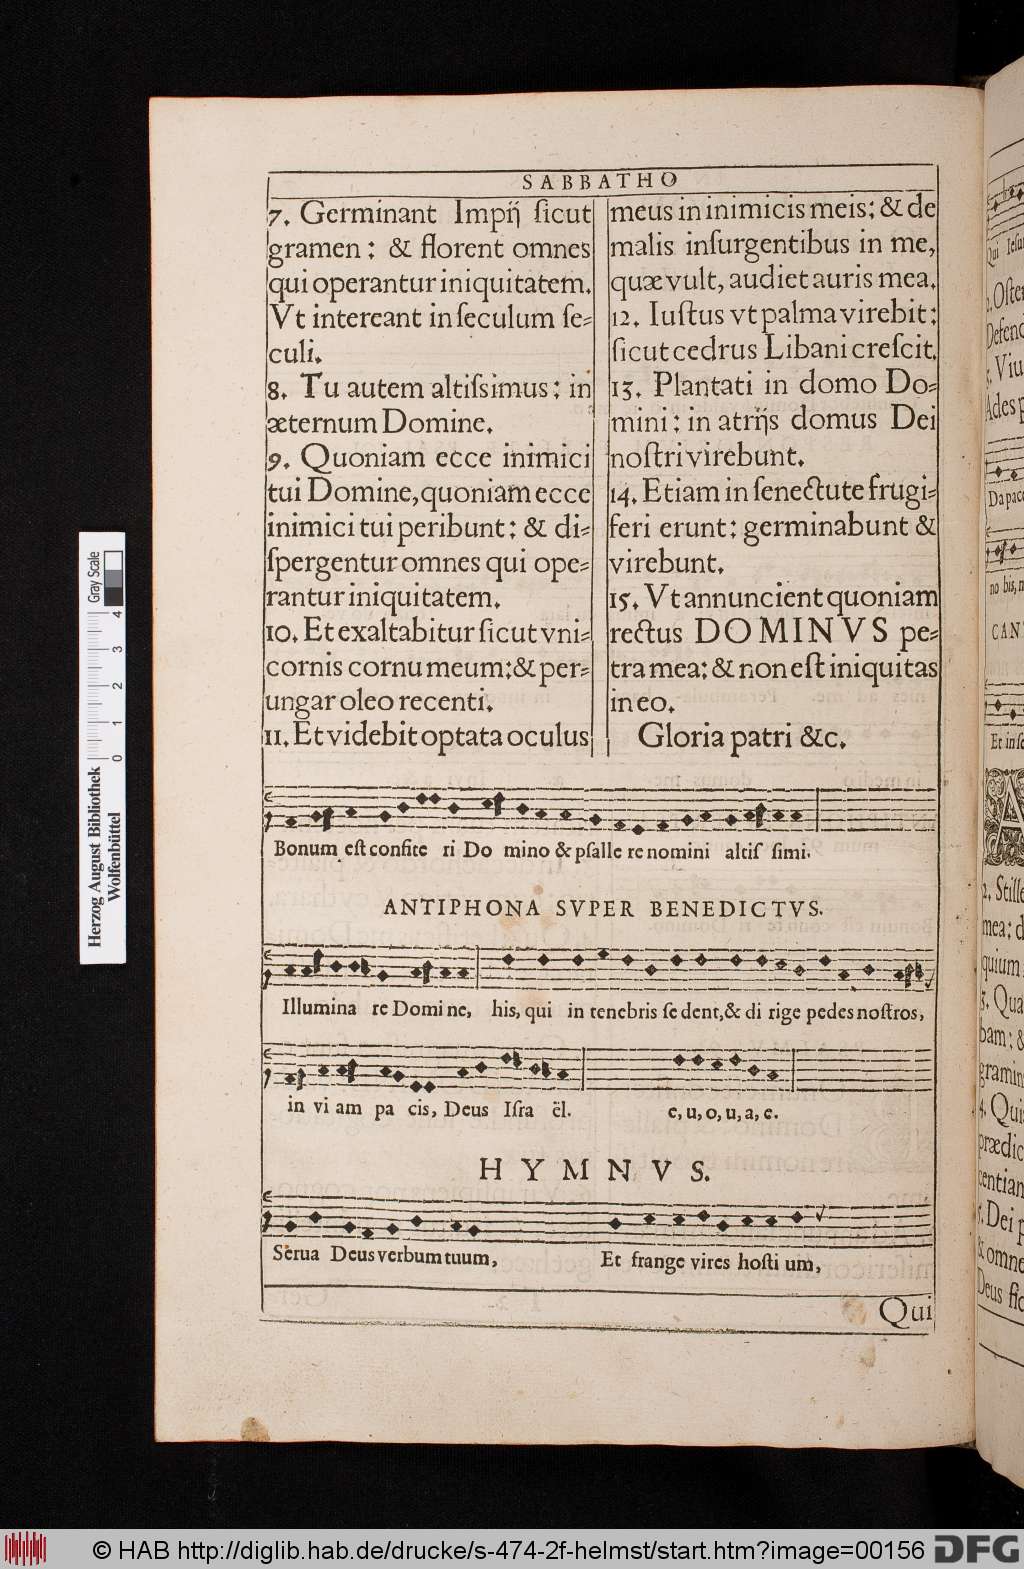 SABBATHO
7. Germinant Impiĳ ſicut
gramen: & florent omnes
qui operantur iniquitatem.
Vt intereant in ſeculum ſe=
culi.
8. Tu autem altiſsimus: in
æternum Domine.
9. Quoniam ecce inimici
tui Domine, quoniam ecce
inimici tui peribunt: & di=
ſpergentur omnes qui ope=
rantur iniquitatem.
10. Et exaltabitur ſicut vni=
cornis cornu meum: & per=
ungar oleo recenti.
11. Et videbit optata oculus
meus in inimicis meis: & de
malis inſurgentibus in me,
quæ vult, audiet auris mea.
12. Iuſtus vt palma virebit:
ſicut cedrus Libani creſcit.
13. Plantati in domo Do=
mini: in atrĳs domus Dei
noſtri virebunt.
14. Etiam in ſenectute frugi=
feri erunt: germinabunt &
virebunt.
15. Vt annuncient quoniam
rectus DOMINVS pe=
tra mea: & non eſt iniquitas
in eo.
Gloria patri &c.
Bonum eſt confite ri Do mino & pſalle re nomini altiſ ſimi.
ANTIPHONA SVPER BENEDICTVS.
Illumina re Domine, his, qui in tenebris ſe dent, & di rige pedes noſtros,
in vi am pa cis, Deus Iſra ël. e, u, o, u, a, e.
HYMNVS.
Serua Deus verbum tuum, Et frange vires hoſti um,
Qui
Qui Ieſu
2. Oſten
Defend
3. Viu
Ades p
Da pace
no bis, n
CAN
Et in ſe
A
2. Stille
mea: d
quium
3. Qua
bam: &
gramin
4. Qui
prædic
centian
5. Dei p
& omne
Deus fid
Herzog August Bibliothek
Wolfenbüttel
0 1 2 3 4
Gray Scale
© HAB http://diglib.hab.de/drucke/s-474-2f-helmst/start.htm?image=00156
DFG